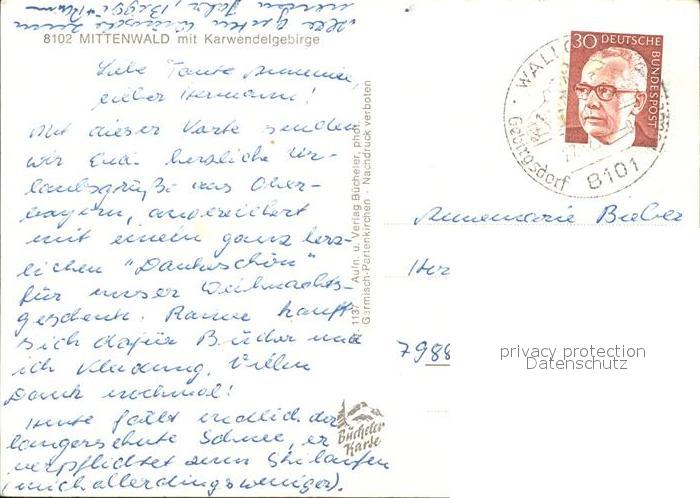 8102 MITTENWALD mit Karwendelgebirge
Liebe Tante Annemie,
lieber Hermann!
Mit dieser Karte senden
wir Euch herzliche Ur-
laubsgrüße aus Ober-
bayern, angereichert
mit einem ganz herz-
lichen "Dankeschön"
für unser Weihnachts-
geschenk. Rainer kauft
sich dafür Bücher und
ich Kleidung. Vielen
Dank nochmal!
Heute fällt endlich der
langersehnte Schnee, er
verpflichtet zum Skilaufen
(mich allerdings weniger).
Alles Guten Wünsche zum
neuen Jahr,
1137 Aufn. u. Verlag Bücheler, phot.
Garmisch-Partenkirchen · Nachdruck verboten
Bücheler
Karte
30 DEUTSCHE
BUNDESPOST
WALLG
Gebirgsdorf 8101
Annemarie Bieber
798
privacy protection
Datenschutz